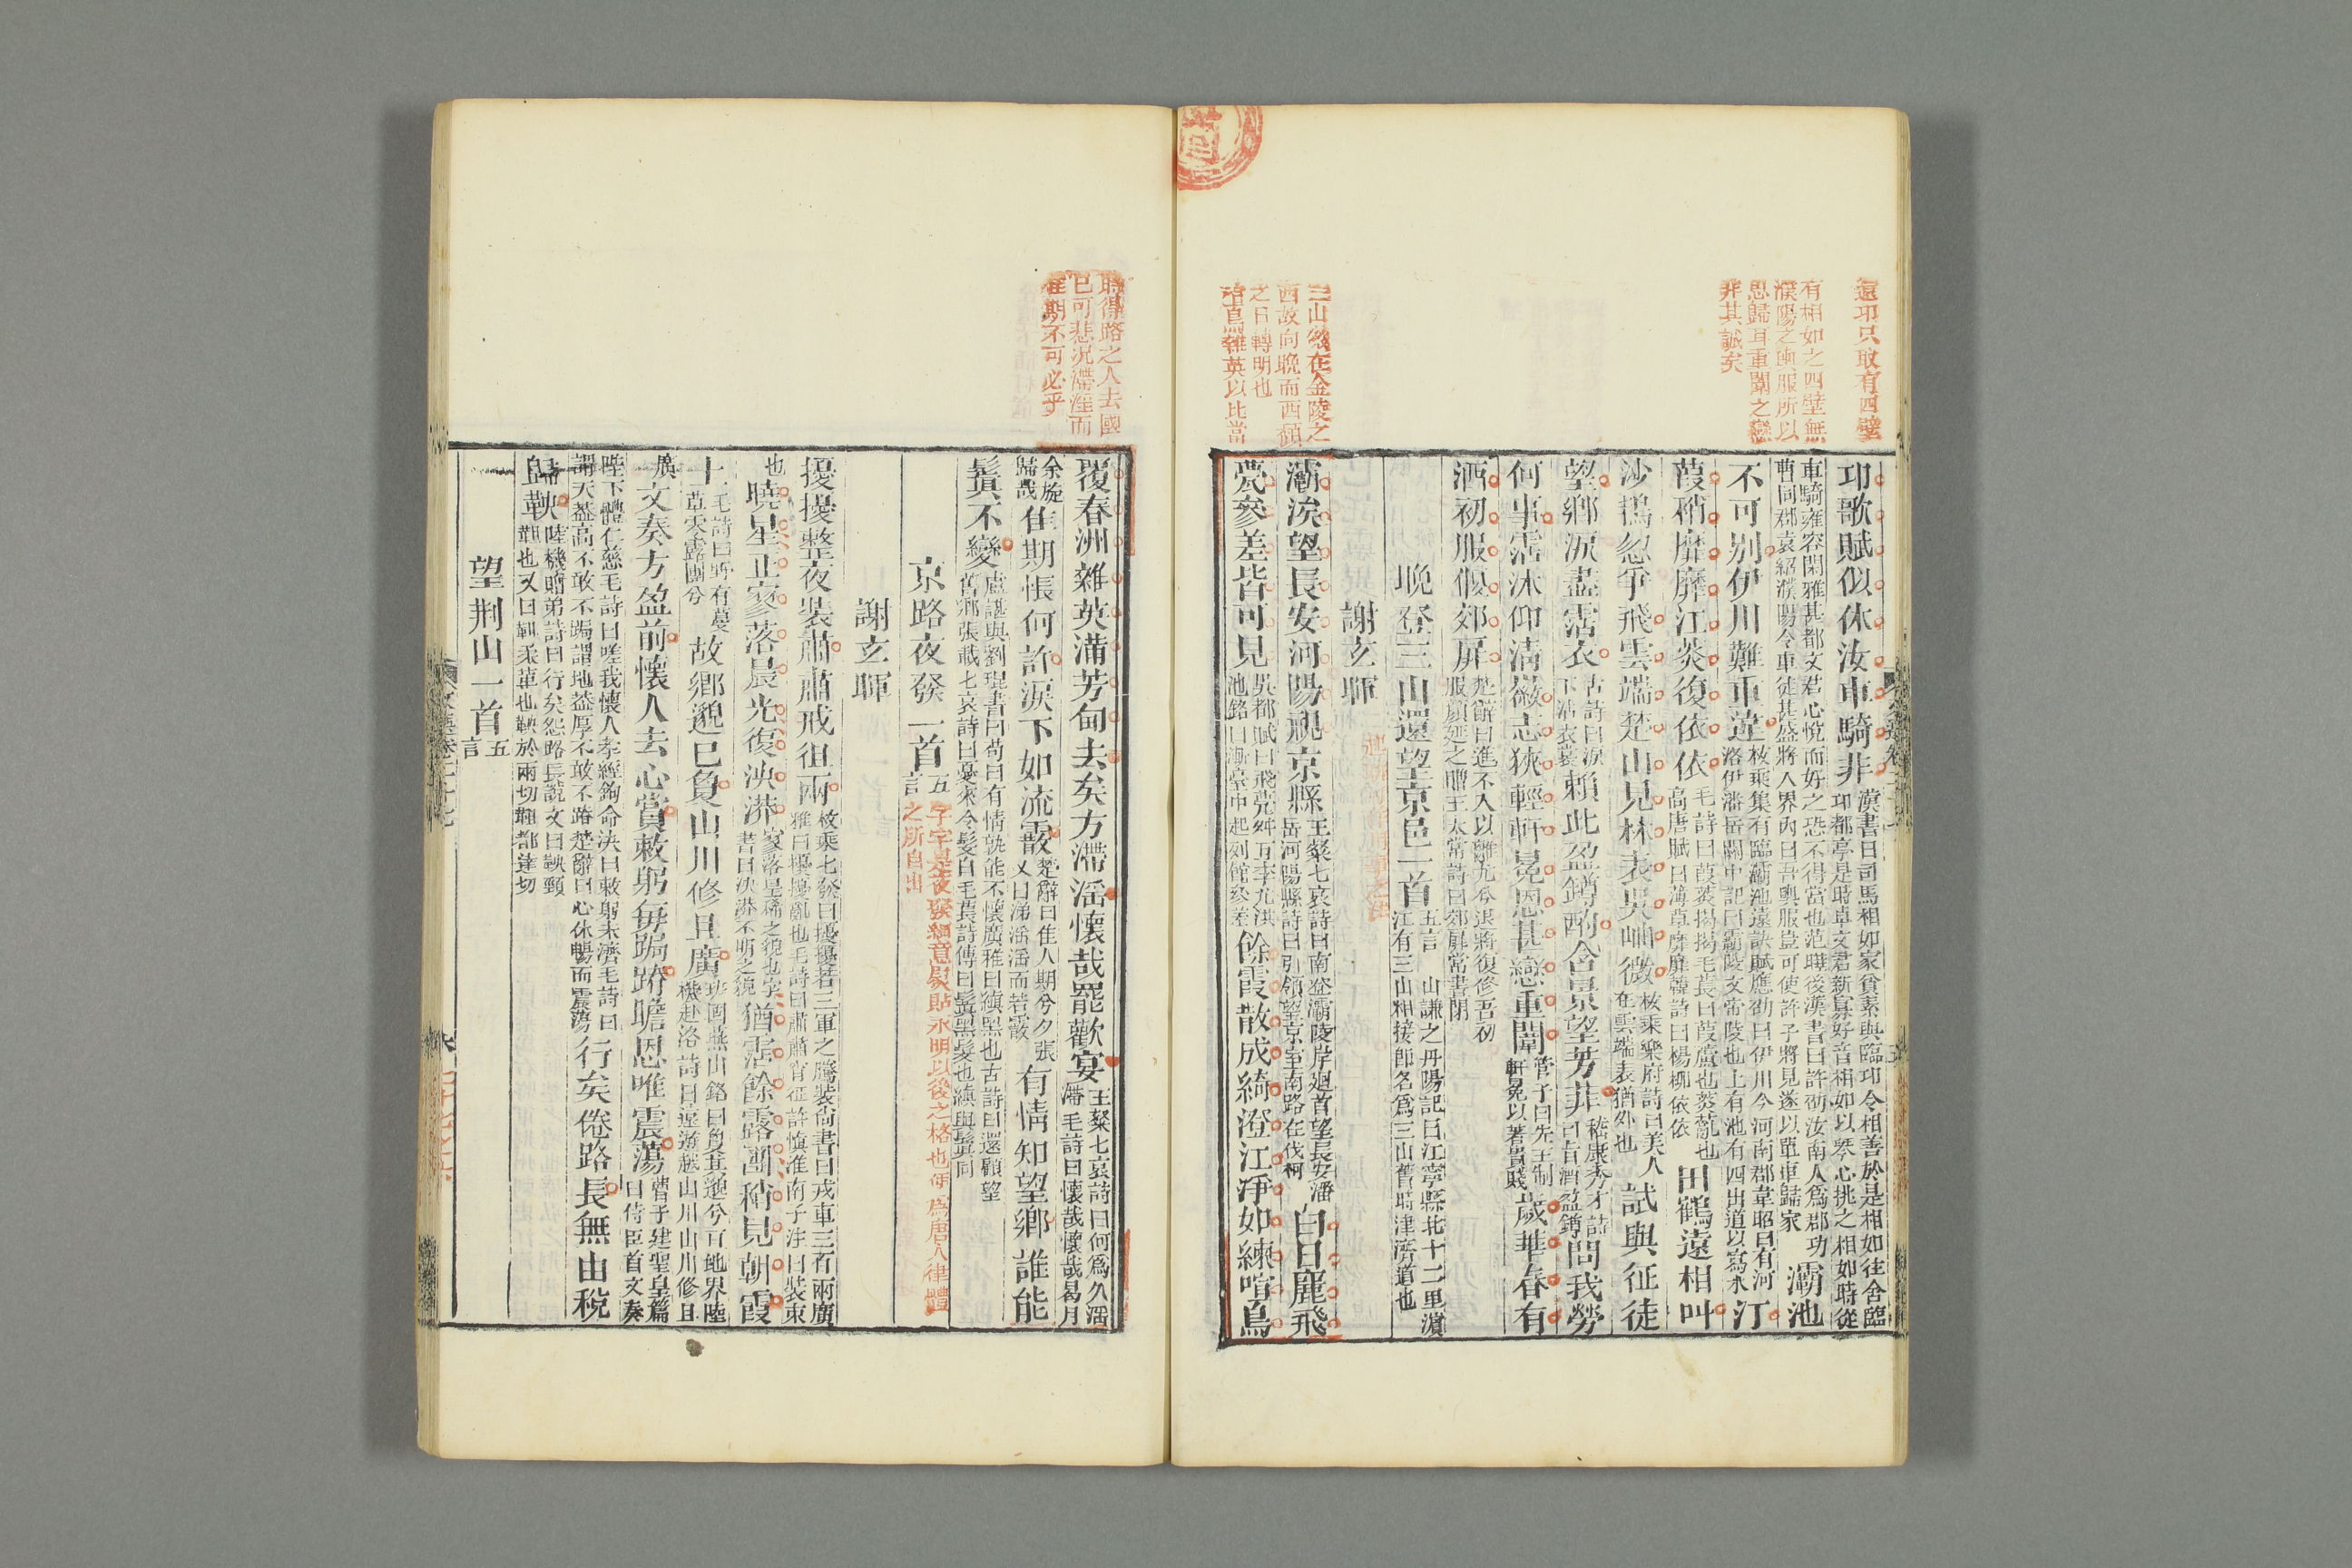 還邛只敢有四壁
有相如之四壁無
濮陽之輿服所以
思歸耳重闈之戀
非其誠矣
邛歌賦似休汝車騎非
漢書曰司馬相如家貧素與臨邛令相善於是相如往舍臨
邛都亭是時卓文君新寡好音相如以琴心挑之相如時從
車騎雍容閑雅甚都文君心悅而好之恐不得當也范曄後漢書曰許劭汝南人爲郡功
曹同郡袁紹濮陽令車徒甚盛將入界內曰吾輿服豈可使許子將見遂以單車歸家
灞池
不可別伊川難重違
枚乘集有臨灞池遠訣賦應劭曰伊川今河南郡韋昭曰有河
洛伊潘岳關中記曰霸陵文帝陵也上有池有四出道以瀉水
汀
葭稍靡靡江菼復依依
毛詩曰葭菼揭揭毛萇曰葭蘆也菼薍也
高唐賦曰薄草靡靡韓詩曰楊柳依依
田鶴遠相叫
沙鴇忽爭飛雲端楚山見林表吳岫微
枚乘樂府詩曰美人
在雲端表猶外也
試與征徒
望鄉淚盡霑衣
古詩曰淚
下沾衣裳
賴此盈罇酌含景望芳菲
嵇康秀才詩
曰旨酒盈罇
問我勞
何事霑沐仰清徽志狹輕軒冕恩甚戀重闈
管子曰先王制
軒冕以著貴賤
歲華春有
酒初服偃郊扉
楚辭曰進不入以離尤兮退將復修吾初
服顏延之贈王太常詩曰郊扉常晝閉
晚登三山還望京邑一首
五言 山謙之丹陽記曰江寧縣北十二里濱
江有三山相接卽名爲三山舊時津濟道也
謝玄暉
三山猶在金陵之
西故向晚而西傾
之日轉明也
灞涘望長安河陽視京縣
王粲七哀詩曰南登灞陵岸廻首望長安潘
岳河陽縣詩曰引領望京室南路在伐柯
白日麗飛
甍參差皆可見
吳都賦曰飛甍舛互李尤洪
池銘曰漸臺中起列館參差
餘霞散成綺澄江淨如練喧鳥
時得路之人去國
已可悲況滯淫而
佳期不可必乎
覆春洲雜英滿芳甸去矣方滯淫懷哉罷歡宴
王粲七哀詩曰何爲久滯
淫毛詩曰懷哉懷哉曷月
余旋
歸哉
佳期悵何許淚下如流霰
楚辭曰與佳人期兮夕張
又曰涕淫淫而若霰
有情知望鄉誰能
鬒不變
盧諶與劉琨書曰苟曰有情孰能不懷廣雅曰縝黑也古詩曰還顧望
舊鄉張載七哀詩曰憂來令髮白毛萇詩傳曰鬒黑髮也縝與鬒同
京路夜發一首
五
言
字字是夜發網意熨貼永明以後之格也年爲唐人律體
之所自出
謝玄暉
擾擾整夜裝肅肅戒徂兩
枚乘七發曰擾擾若三軍之騰裝尚書曰戎車三百兩廣
雅曰擾擾亂也毛詩曰肅肅宵征許愼淮南子注曰裝束
也
曉星正寥落晨光復泱漭
寥落星稀之貌也字
書曰泱漭不明之貌
猶霑餘露團稍見朝霞
上
毛詩曰野有蔓
草零露團兮
故鄉邈已敻山川修且廣
班固燕山銘曰敻其邈兮亘地界陸
機赴洛詩曰遠遊越山川山川修且
廣
文奏方盈前懷人去心賞敕躬每跼蹐瞻恩唯震蕩
曹子建聖皇篇
曰侍臣首文奏
陛下體仁慈毛詩曰嗟我懷人孝經鉤命決曰敕躬未濟毛詩曰
謂天蓋高不敢不跼謂地蓋厚不敢不蹐楚辭曰心休暢而震蕩
行矣倦路長無由稅
歸鞅
陸機贈弟詩曰行矣怨路長說文曰鞅頸
靼也又曰靼柔革也鞅於兩切靼都達切
望荆山一首
五
言